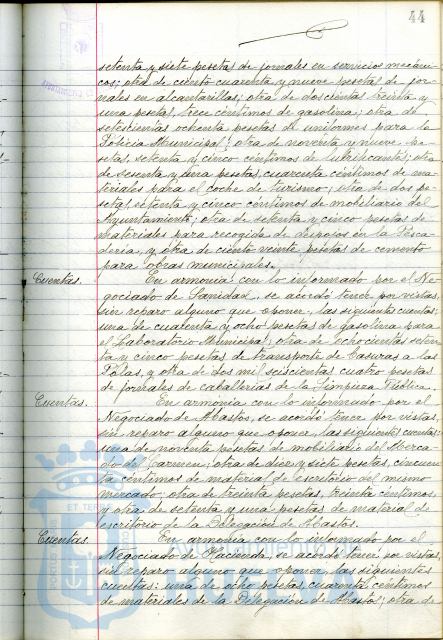 44
setenta y siete pesetas de jornales en servicios mecáni-
cos; otra de ciento cuarenta y nueve pesetas de jor-
nales en alcantarillas; otra de doscientas treinta y
una pesetas, trece céntimos de gasolina; otra de
setecientas ochenta pesetas de uniformes para la
Policía Municipal; otra de noventa y nueve pe-
setas, setenta y cinco céntimos de lubrificantes; otra
de sesenta y una pesetas, cuarenta céntimos de ma-
teriales para el coche de turismo; otra de dos pe-
setas, setenta y cinco céntimos de mobiliario del
Ayuntamiento; otra de setenta y cinco pesetas de
materiales para recogida de despojos en la Pesca-
dería, y otra de ciento veinte pesetas de cemento
para obras municipales.
Cuentas. En armonía con lo informado por el Ne-
gociado de Sanidad, se acordó tener por vistas,
sin reparo alguno que oponer, las siguientes cuentas:
una de cuarenta y ocho pesetas de gasolina para
el Laboratorio Municipal; otra de ochocientas seten-
ta y cinco pesetas de transporte de basuras a las
Pólas, y otra de dos mil seiscientas cuatro pesetas
de jornales de caballerías de la Limpieza Pública.
Cuentas. En armonía con lo informado por el
Negociado de Abastos, se acordó tener por vistas,
sin reparo alguno que oponer, las siguientes cuentas:
una de noventa pesetas de mobiliario del Merca-
do del Carmen; otra de diez y siete pesetas, cincuen-
ta céntimos de material de escritorio del mismo
mercado; otra de treinta pesetas, treinta céntimos,
y otra de setenta y una pesetas de material de
escritorio de la Delegación de Abastos.
Cuentas. En armonía con lo informado por el
Negociado de Hacienda, se acordó tener por vistas,
sin reparo alguno que oponer, las siguientes
cuentas: una de ocho pesetas cuarenta céntimos
de materiales de la Delegación de Abastos; otra de